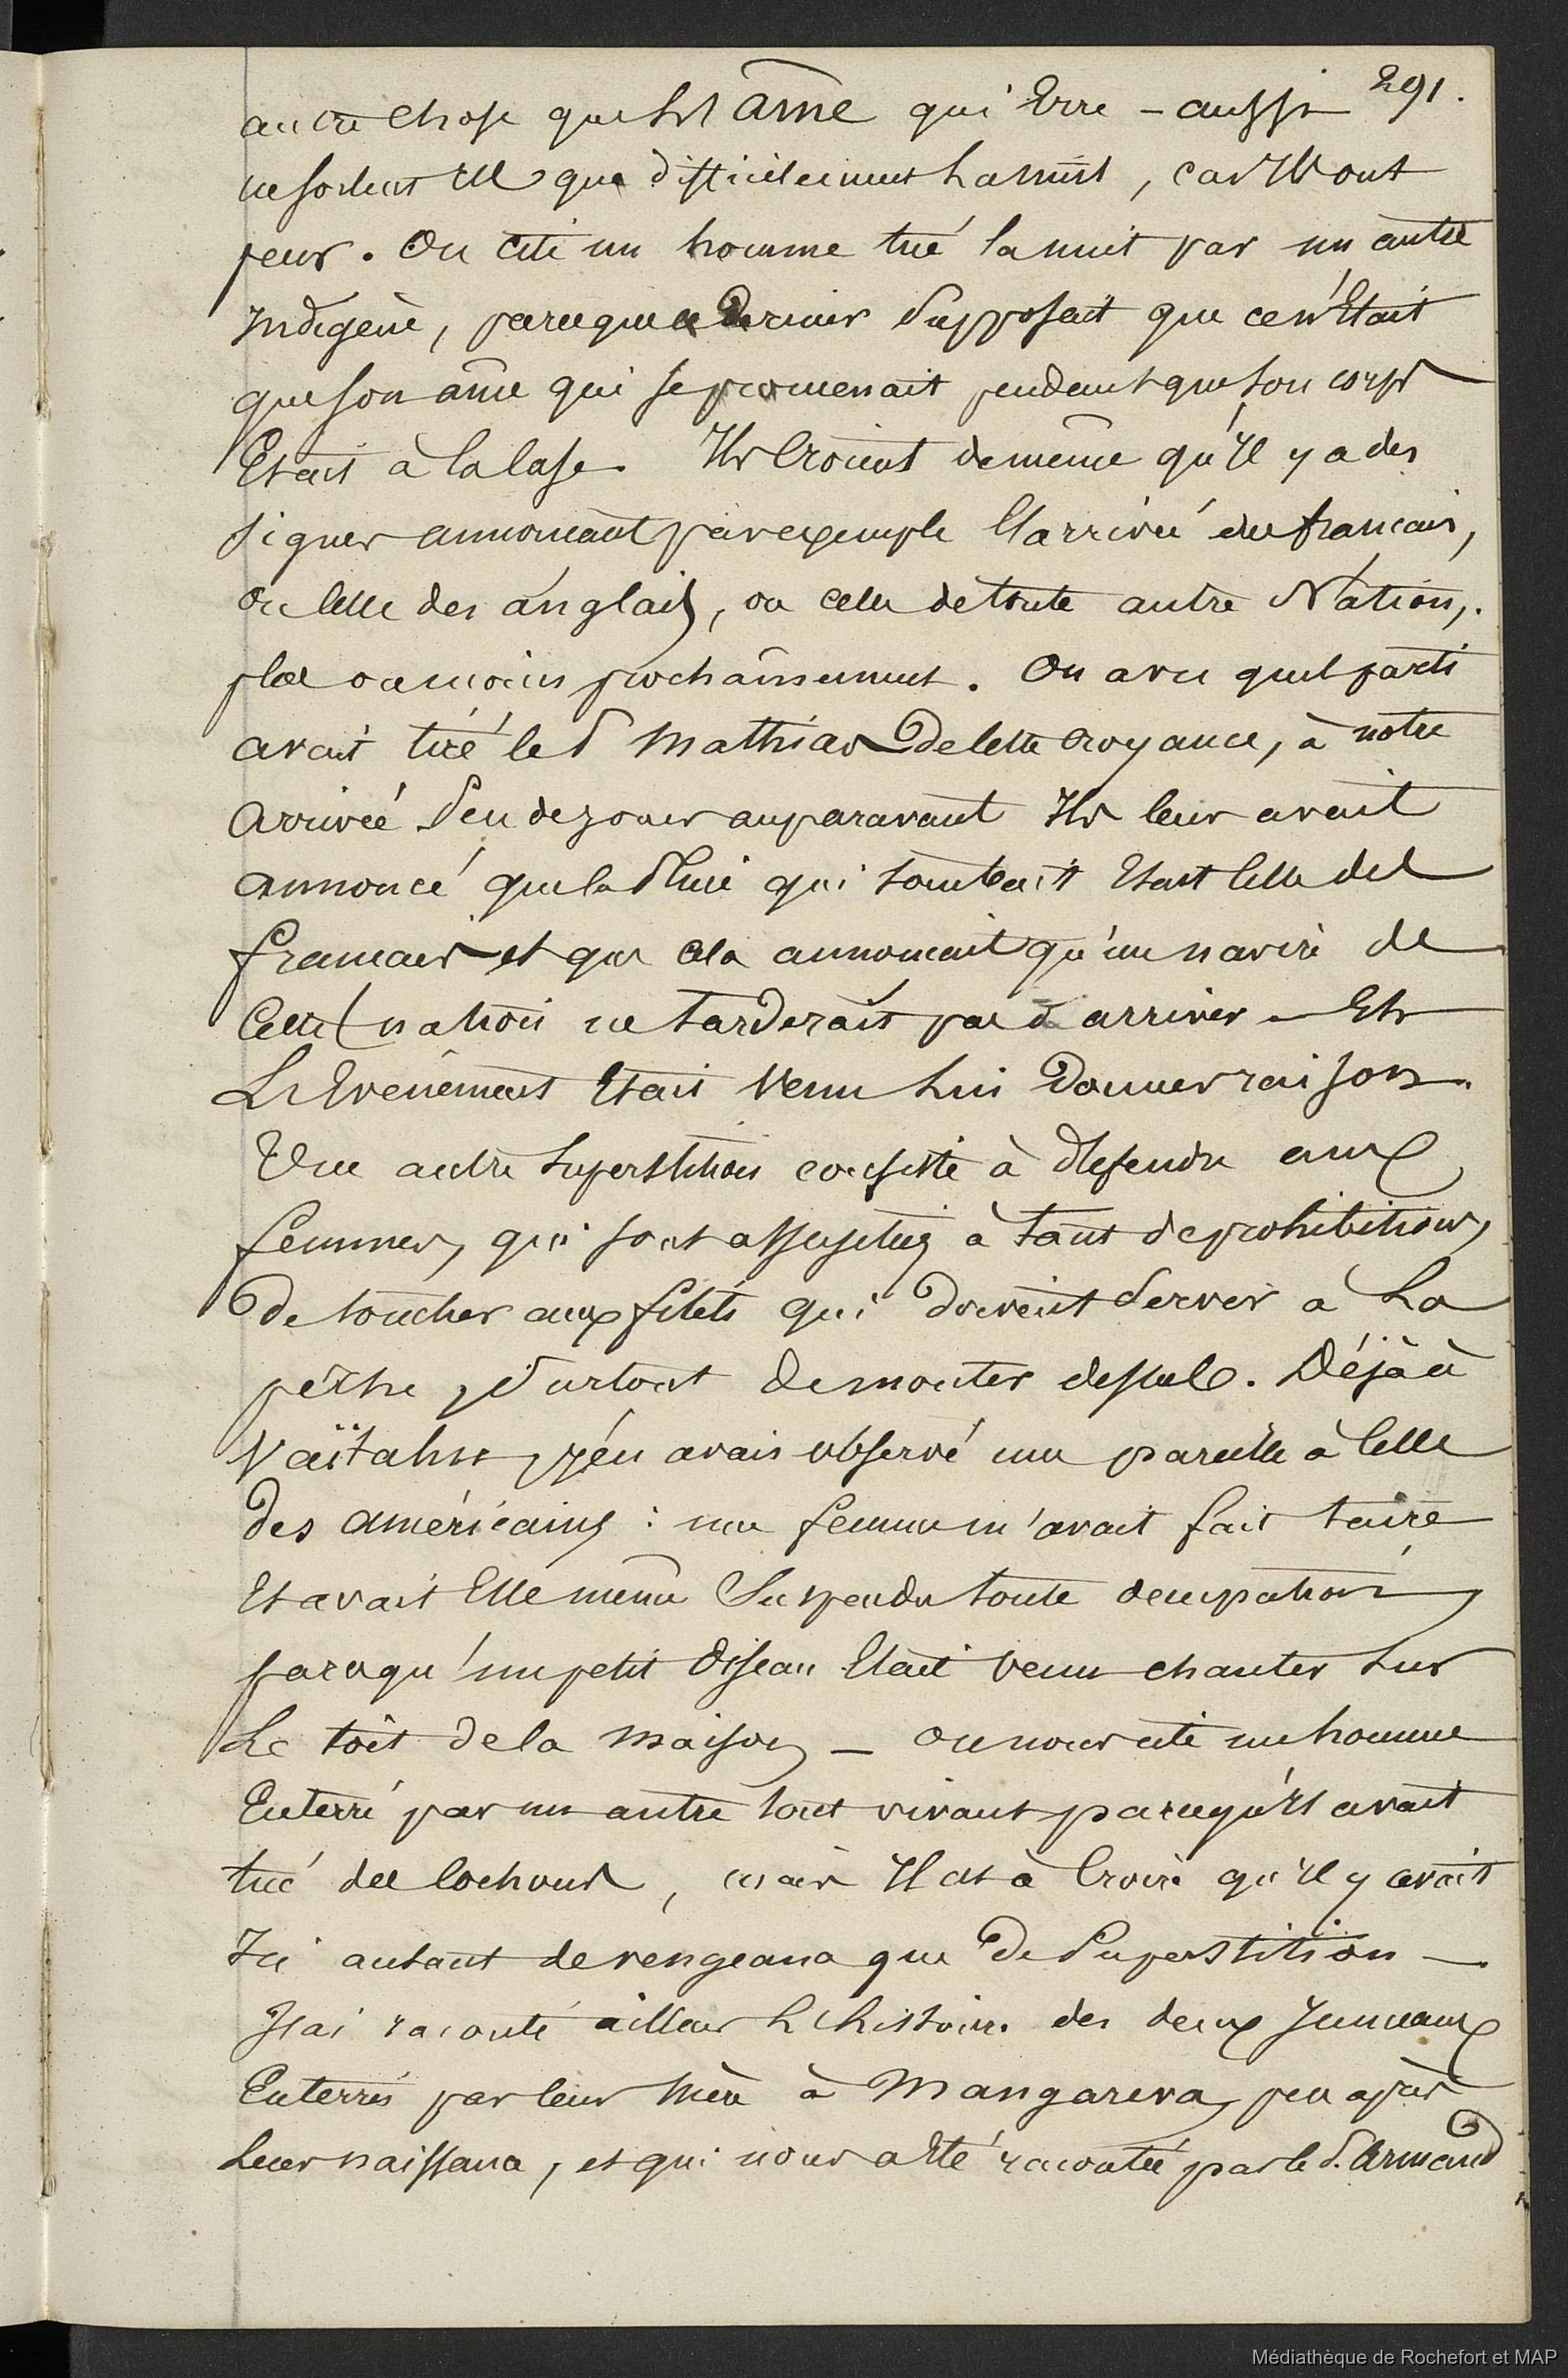 291.
autre chose que les âme qui Erre – aussi
ne sortent Ils que difficilement la nuit, car Ils ont
peur. On cite un homme tué la nuit par un autre
Indigène, parceque ce dernier supposait que ce n'Etait
que son âme qui se promenait pendant que son corps
Etait à la Case. Ils Croient de même qu'Il y a des
signes annoncant par exemple l'arrivée des francais,
ou Celle des anglais, ou celle de toute autre Nation,.
plus ou moins prochainement. On a vu quel parti
avait tiré le P Mathias de cette croyance, à notre
arrivée. Peu de jours auparavant Ils leur avait
annoncé que la Pluie qui tombait Etait Celle des
francais et que cela annoncait qu'un navire de
Cette nation ne tarderait pas à arriver – Et
L'Evenement Etait venu Lui Donner raison.
Une autre superstition consiste à deffendre aux
femmes, qui sont assujeties à tant de prohibitions,
De toucher aux filets qui doivent servir à La
pêche, Surtout de monter dessus. Déjà à
Vaïtahu, j'en avais observé une pareille à Celle
des américains : une femme m'avait fait taire
Et avait Elle même Suspendu toute occupation,
parcequ'un petit Oiseau Etait venu chanter sur
Le toit de la maison – on nous cite un homme
Enterré par un autre tout vivant parcequ'Il avait
tué des Cochons, mais Il est à Croire qu'Il y avait
Ici autant de vengeance que de Superstition –
J'ai raconté ailleurs L'histoire des deux Jumeaux
Enterrés par leur Mère à Mangareva, peu après
Leur naissance, et qui nous a Eté racontée par le P. Armand
Médiathèque de Rochefort et MAP